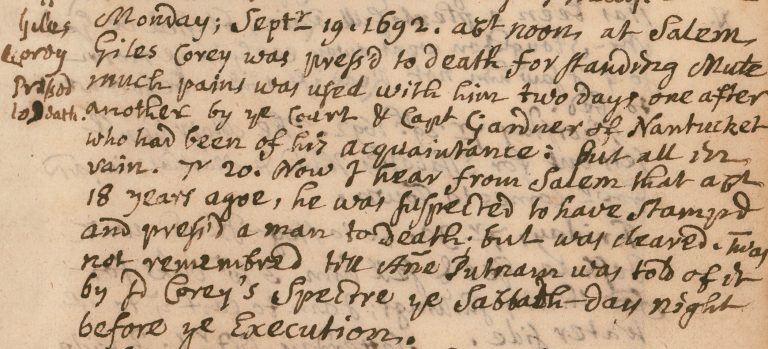 Giles
Corey
Pressed
to Death.
Monday, Septr 19. 1692. abt noon, at Salem,
Giles Corey was press'd to death for standing Mute
much pains was used with him two days, one after
another by ye Court & Capt Gardner of Nantucket
who had been of his acquaintance: but all in
vain. 7r 20. Now I hear from Salem that abt
18 years agoe, he was suspected to have stamp'd
and press'd a man to death. but was cleared. Twas
not remembred till Añe Putnam was told of it
by sd Corey's Spectre ye Sabbath-day night
before ye Execution.